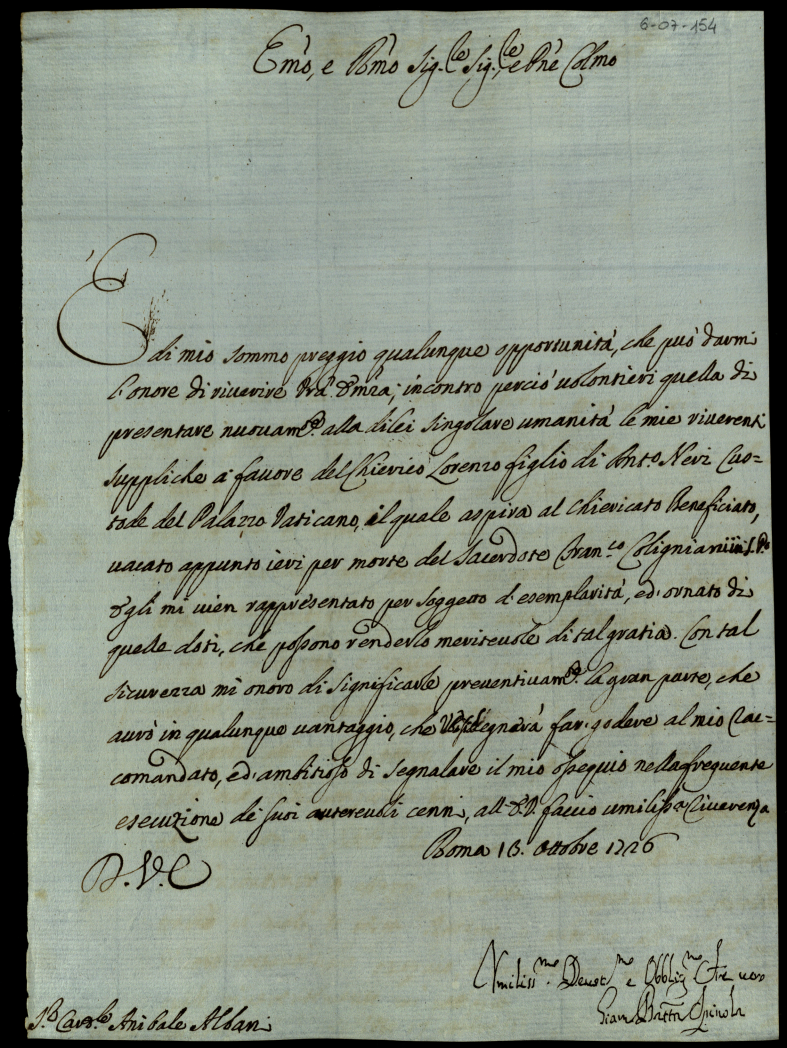 6-07-154
Em̃o, e Rm̃o Sig.re Sig.re, e Pñe Colmo
È di mio sommo preggio qualunque opportunità, che può darmi
l'onore di riverire Vrã Em̃za; incontro perciò volontieri quella di
presentare nuovam.te alla di lei singolare umanità le mie riverenti
suppliche a favore del Chierico Lorenzo figlio di Ant.o Nevi Cuo=
tode del Palazzo Vaticano, il quale aspira al Chiericato Beneficiato,
vacato appunto ieri per morte del Sacerdote Fran.co
Egli mi vien rappresentato per soggetto d'esemplarità, ed'ornato di
quelle doti, che possono renderlo meritevole di tal gratia. Con tal
sicurezza mi onoro di significarle preventivam.te la gran parte, che
avrò in qualunque vantaggio, che degnerà far godere al mio Rac=
comandato, ed'ambitioso di segnalare il mio ossequio nella frequente
esecuzione de suoi autorevoli cenni, all'E.V. faccio umiliss.a Riverenza
Roma 13. Ottobre 1726
D. V. E
Umiliss.mo Devot.mo e Obblig.mo Ser vero
Giam Batta Spinola
S.r Card.le Anibale Albani